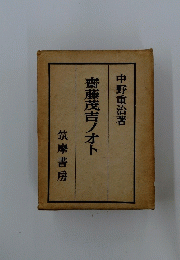 中野重治著
斎藤茂吉ノオト
筑摩書房